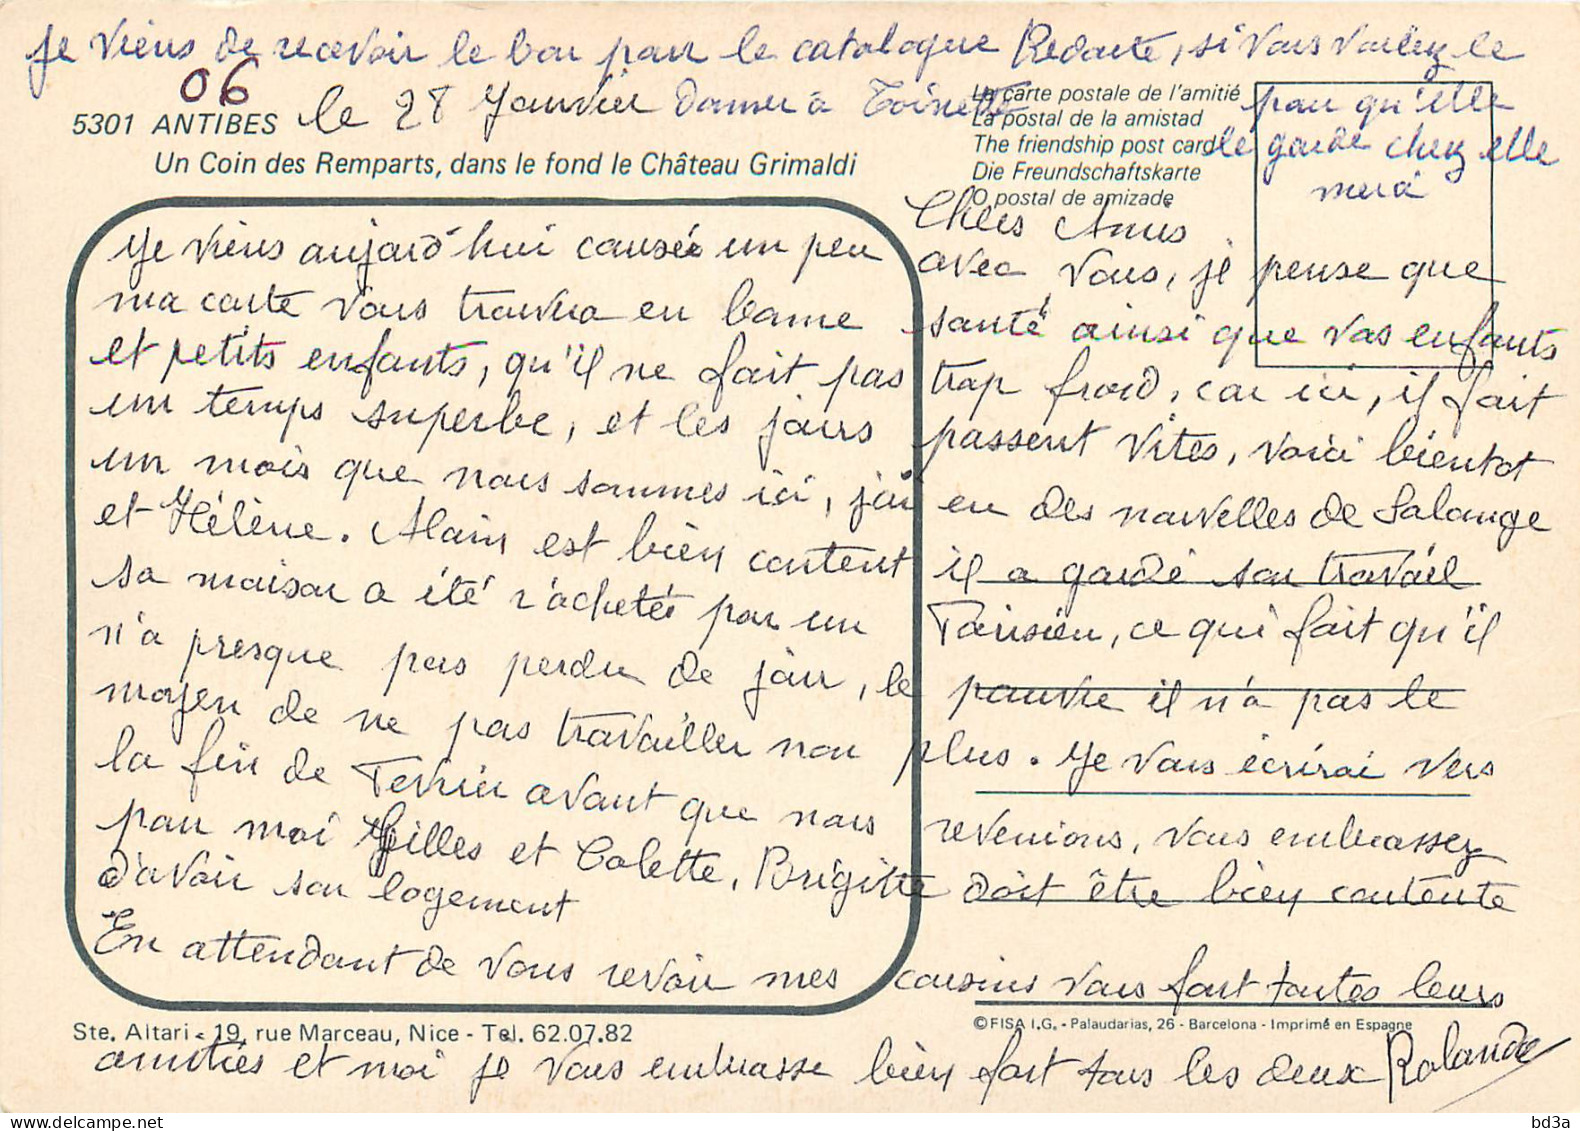 Je viens de recevoir le bon pour le catalogue Redoute, si vous voulez le
06
5301 ANTIBES le 28 Janvier donner à Toinette pour qu'elle
Un Coin des Remparts, dans le fond le Château Grimaldi
La carte postale de l'amitié
La postal de la amistad
The friendship post card
Die Freundschaftskarte
O postal de amizade
le garde chez elle
merci
Chers Amis
Je viens aujard'hui causée un peu avec vous, je pense que
ma carte vous trouvera en bonne santé ainsi que vos enfants
et petits enfants, qu'il ne fait pas trop froid, car ici, il fait
un temps superbe, et les jours passent vites, voici bientot
un mois que nous sommes ici, j'ai eu des nouvelles de Solange
et Hélène. Alain est bien content il a gardé son travail
sa maison a été r'achetée par un Parisien, ce qui fait qu'il
n'a presque pas perdu de jour, le pauvre il n'a pas le
moyen de ne pas travailler non plus. Je vous écrirai vers
la fin de Fevrier avant que nous revenions, vous embrassez
pour moi Gilles et Colette, Brigitte doit être bien contente
d'avoir son logement
En attendant de vous revoir mes cousins vous font toutes leurs
Ste. Altari - 19, rue Marceau, Nice - Tel. 62.07.82
©FISA I.G. - Palaudarias, 26 - Barcelona - Imprimé en Espagne
amitiés et moi je vous embrasse bien fort tous les deux Rolande
bd3a